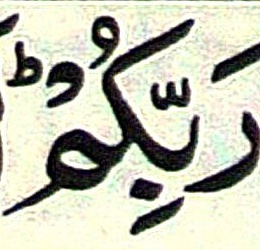 رَبِّكُمْ ؕ